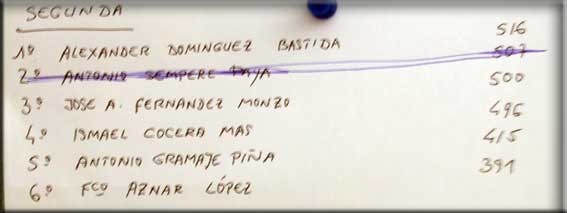 SEGUNDA
1º ALEXANDER DOMINGUEZ BASTIDA 516
2º ANTONIO SEMPERE PAYA 507
3º JOSE A. FERNANDEZ MONZO 500
4º ISMAEL COCERA MAS 496
5º ANTONIO GRAMAJE PIÑA 415
6º FCO AZNAR LÓPEZ 391